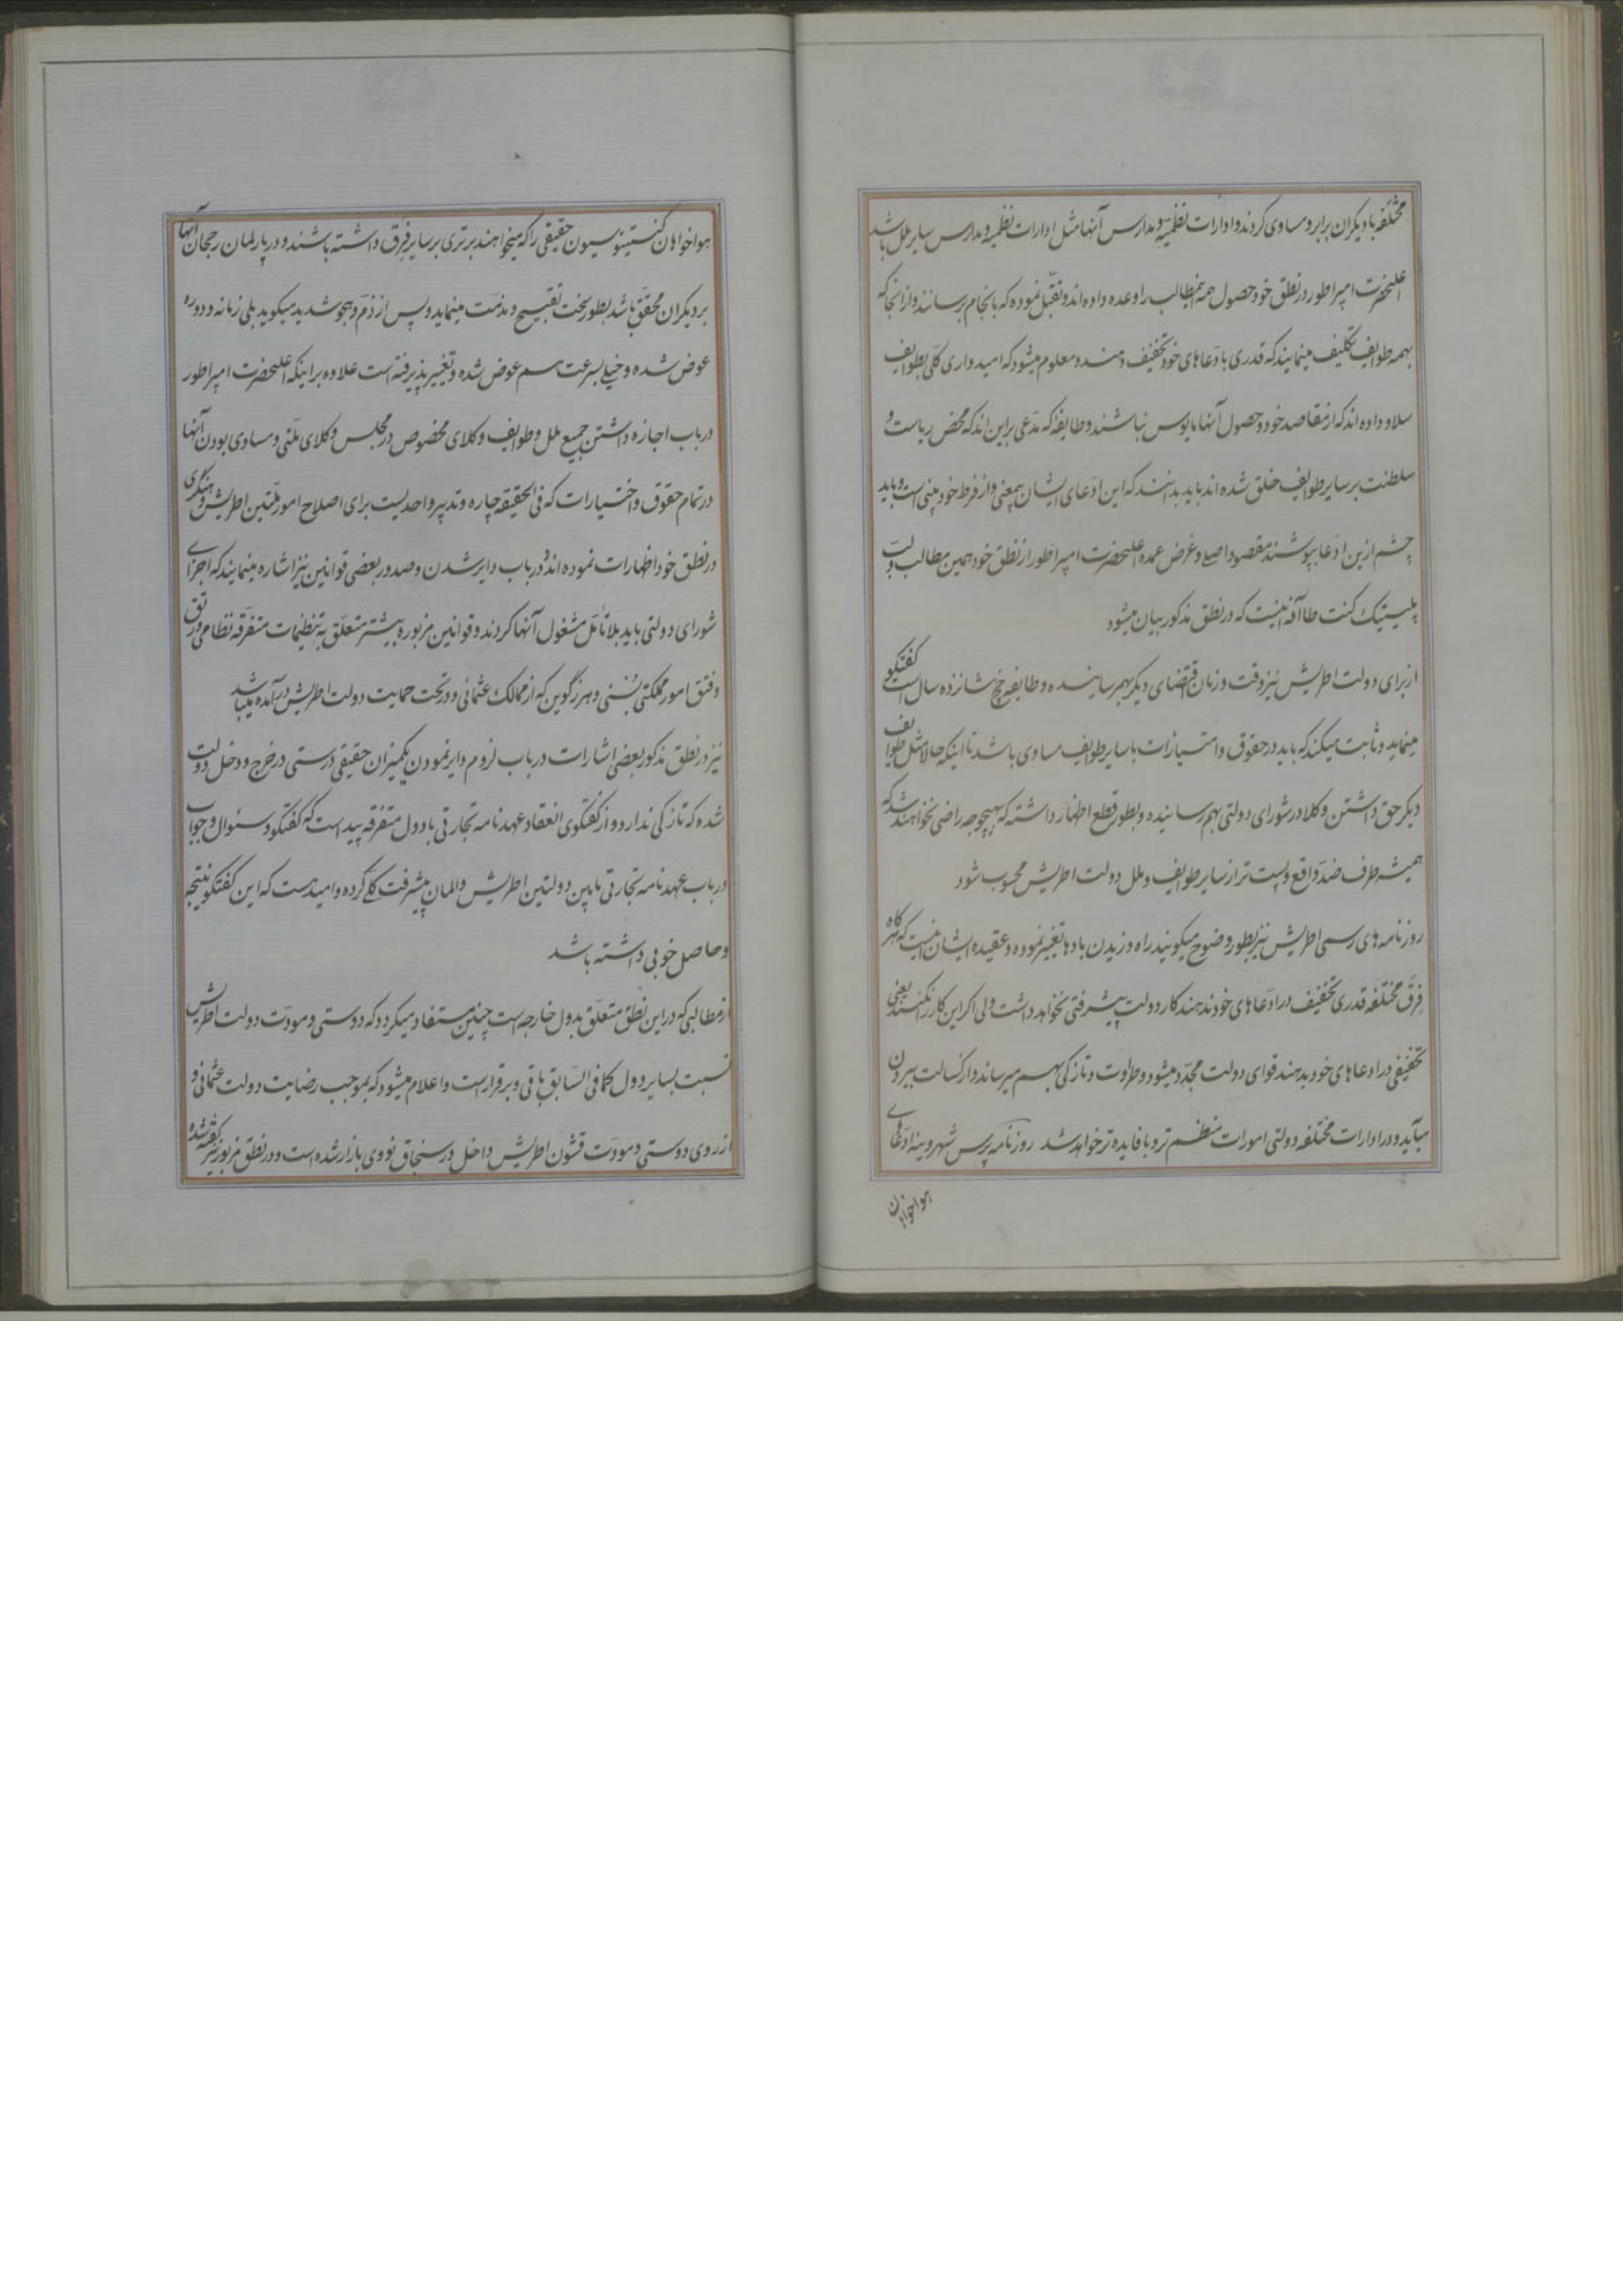 مختلفه با دیگران برابر و مساوی کردند و ادارات نظمیّه و مدارس آنها مثل ادارات نظمیه و مدارس سایر ملل باشد
اعلیحضرت امپراطور در نطق خود حصول همه مطالب را وعده داده‌اند و تقبّل نموده که بانجام برسانند و از آنجا که
بهمه طوایف تکلیف مینمایند که قدری بادّعاهای خود تخفیف دهند و معلوم میشود که امیدواری کلّی بطوایف
سلاو داده‌اند که از مقاصد خود و حصول آنها مایوس نباشند و طایفۀ که مدّعی بر این‌اند که محض ریاست و
سلطنت بر سایر طوایف خلق شده‌اند باید بدانند که این ادّعای ایشان بیمعنی و از فرط خودبینی است و باید
چشم ازین ادّعا بپوشند مقصود اصلی و غرض عمده اعلیحضرت امپراطور از نطق خود همین مطالب و
پلیتیک کنت طاآفه اینست که در نطق مذکور بیان میشود
از برای دولت اطریش نیز وقت و زمان اقتضای دیگر بهمرسانیده و طایفه چخ شانزده سال است گفتگو
مینماید و ثابت میکند که باید در حقوق و امتیازات با سایر طوایف مساوی باشد تا اینکه حالا مثل طوایف
دیگر حق داشتن وکلا در شورای دولتی بهم رسانیده و بطور قطع اظهار داشته که بهیچوجه راضی نخواهند شد که
همیشه طرف ضدّ واقع و پست‌تر از سایر طوایف و ملل دولت اطریش محسوب شود
روزنامه‌های رسمی اطریش نیز بطور وضوح میگویند راه وزیدن بادها تغییر نموده و عقیده ایشان اینست که هرگاه
فِرَق مختلفه قدری تخفیف در ادّعاهای خود ندهند کار دولت پیشرفتی نخواهد داشت ولی اگر این کار را نکنند یعنی
تخفیفی در ادعاهای خود بدهند قوای دولت مجدّد میشود و طراوت و تازگی بهم میرساند و از کسالت بیرون
میآید و در ادارات مختلفه دولتی امورات منظم‌تر و با فایده‌تر خواهد شد روزنامه پرس شهر وینه ادعای
هواخواهان
هواخواهان کنستیتوسیون حقیقی را که میخواهند برتری بر سایر فِرَق داشته باشند و در پارلمان رجحان آنها
بر دیگران محقّق باشد بطور سخت تقبیح و مذمت مینماید و پس از ذمّ و هجو شدید میگوید بلی زمانه و دوره
عوض شده و خیلی بسرعت هم عوض شده و تغییر پذیرفته است علاوه بر اینکه اعلیحضرت امپراطور
در باب اجازه داشتن جمیع ملل و طوایف وکلای مخصوص در مجلس وکلای ملّتی و مساوی بودن آنها
در تمام حقوق و اختیارات که فی الحقیقه چاره و تدبیر واحدیست برای اصلاح امور ملّتین اطریش و هنگری
در نطق خود اظهارات نموده‌اند و در باب دایر شدن و صدور بعضی قوانین نیز اشاره مینمایند که اجزای
شورای دولتی باید بلا تأمّل مشغول آنها گردند و قوانین مزبوره بیشتر متعلّق به تنظیمات متفرّقه نظامی و رتق
و فتق امور مملکتی بُسنی و هرزگوین که از ممالک عثمانی و در تحت حمایت دولت اطریش درآمده میباشد
نیز در نطق مذکور بعضی اشارات در باب لزوم دایر نمودن یکمیزان حقیقی درستی در خرج و دخل دولت
شده که تازگی ندارد و از گفتگوی انعقاد عهدنامه تجارتی با دول متفرّقه پیداست که گفتگو و سئوال و جواب
در باب عهدنامه تجارتی مابین دولتین اطریش و المان پیشرفت کلّی کرده و امید هست که این گفتگو نتیجه
و حاصل خوبی داشته باشد
از مطالبی که در این نطق متعلّق بدول خارجه است چنین مستفاد میگردد که دوستی و مودّت دولت اطریش
نسبت بسایر دول کمافی السّابق باقی و برقرار است و اعلام میشود که بموجب رضایت دولت عثمانی و
از روی دوستی و مودّت قشون اطریش داخل در سنجاق نووی بازار شده است و در نطق مزبور نیز گفته شده